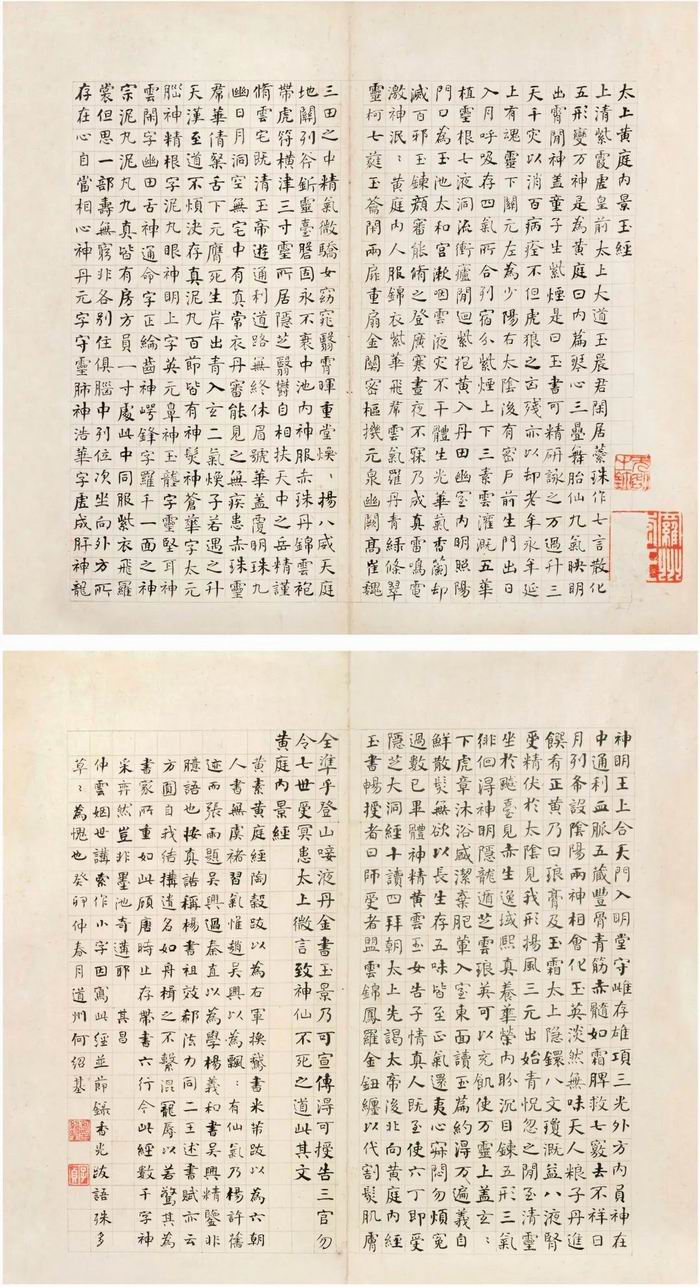 太上黃庭內景玉經
上清紫霞虛皇前太上大道玉晨君閑居蘂珠作七言散化
五形變万神是為黃庭曰內篇琴心三疊舞胎仙九氣映明
出霄間神蓋童子生紫煙是曰玉書可精研詠之万過升三
天千灾以消百病痊不但虎狼之凶殘亦以却老年永年延
上有魂靈下關元左為少陽右太陰後有密戶前生門出日
入月呼吸存四氣所合列宿分紫煙上下三素雲灌溉五華
植靈根七液洞流衝廬間迴紫抱黃入丹田幽室內明照陽
門口為玉池太和官漱咽靈液灾不干體生光華氣香蘭却
滅百邪玉鍊顏審能脩之登廣寒晝夜不寐乃成真雷鳴電
激神泯〻黃庭內人服錦衣紫華飛羣雲氣羅丹青綠條翠
靈柯七蕤玉籥閉兩扉重扇金關密樞機元泉幽闕高崔巍
三田之中精氣微驕女窈窕翳霄暉重堂煥〻揚八威天庭
地關列谷斫靈臺磐固永不衰中池內神服赤珠丹錦雲袍
帶虎符橫津三寸靈所居隱芝翳鬱自相扶天中之岳精謹
脩雲宅既清玉帝遊通利道路無終休眉號華蓋覆明珠九
幽日月洞空無宅中有真常衣丹審能見之無疾患赤珠靈
帬華倩粲舌下元膺死生岸出青入玄二氣煥子若遇之升
天漢至道不煩決存真泥丸百節皆有神髮神蒼華字太元
腦神精根字泥丸眼神明上字英元鼻神玉壟字靈堅耳神
雲閑字幽田舌神通命字正綸齒神崿鋒字羅千一面之神
宗泥丸泥丸九真皆有房方員一寸處此中同服紫衣飛羅
裳但思一部壽無窮非各別住俱腦中列位次坐向外方所
存在心自當相心神丹元字守靈肺神浩華字虛成肝神龍
神明王上合天門入明堂守雌存雄項三光外方內員神在
中通利血脈五藏豐骨青筋赤髓如霜脾救七竅去不祥日
月列布設陰陽兩神相會化玉英淡然無味天人粮子丹進
饌肴正黃乃曰琅膏及玉霜太上隱鐶八文瓊溉益八液腎
受精伏於太陰見我形揚風三元出始青怳忽之間至清靈
坐於飈臺見赤生逸域熙真養華榮內盼沉目鍊五形三氣
徘徊得神明隱龍遁芝雲琅英可以充飢使万靈上蓋玄〻
下虎章沐浴盛潔棄肥薰入室東面讀玉篇約得万遍義自
鮮散髮無欲以長生存五味皆至正氣還夷心寂悶勿煩冤
過數已畢體神精黃雲玉女告子情真人既至使六丁即受
隱芝大洞經十讀四拜朝太上先謁太帝後北向黃庭內經
玉書暢授者曰師受者盟雲錦鳳羅金鈕纏以代割髮肌膚
全準乎登山唼液丹金書玉景乃可宣傳得可授告三官勿
令七世受冥患太上微言致神仙不死之道此其文
黃庭內景經
黃素黃庭經陶穀跋以為右軍換鵝書米芾跋以為六朝
人書無虞褚習氣惟趙吳興以為飄〻有仙氣乃楊許舊
迹而張雨題吳興過秦直以為學楊羲和書吳興精鑒非
臆語也按真誥稱楊書祖效郗法力同二王述書賦亦云
方圓自我結構遺名如舟楫之不繫混寵辱以若驚其為
書家所重如此顧唐時止存帶書六行今此經數千字神
采弈然豈非墨池奇遘耶 其昌
仲雲姻世講索作小字因寫此經並節錄香光跋語殊多
草〻為愧也癸卯仲春月道州何紹基